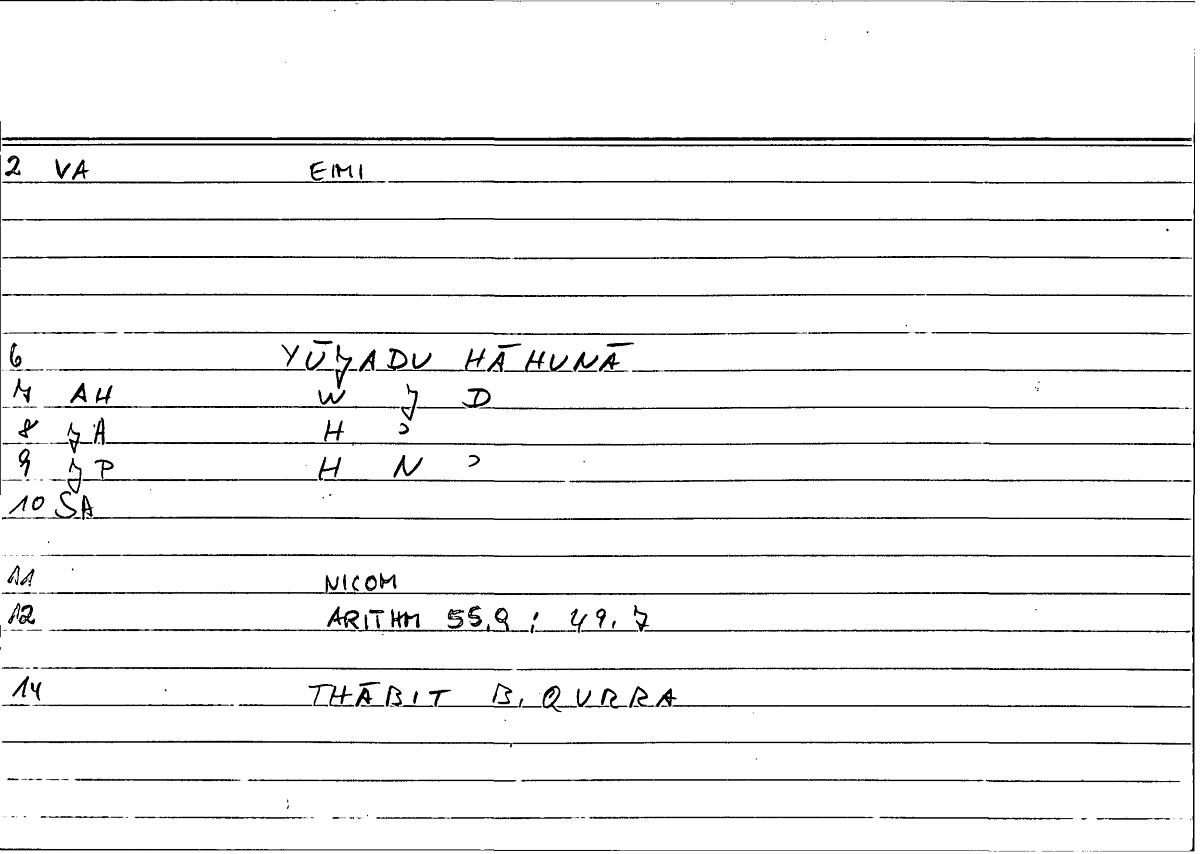 2 VA EIMI
6 YŪJADU HĀHUNĀ
7 AH W J D
8 JA H ʾ
9 JP H N ʾ
10 SA
11 NICOM
12 ARITHM 55,9 ; 49,7
14 THĀBIT B. QURRA